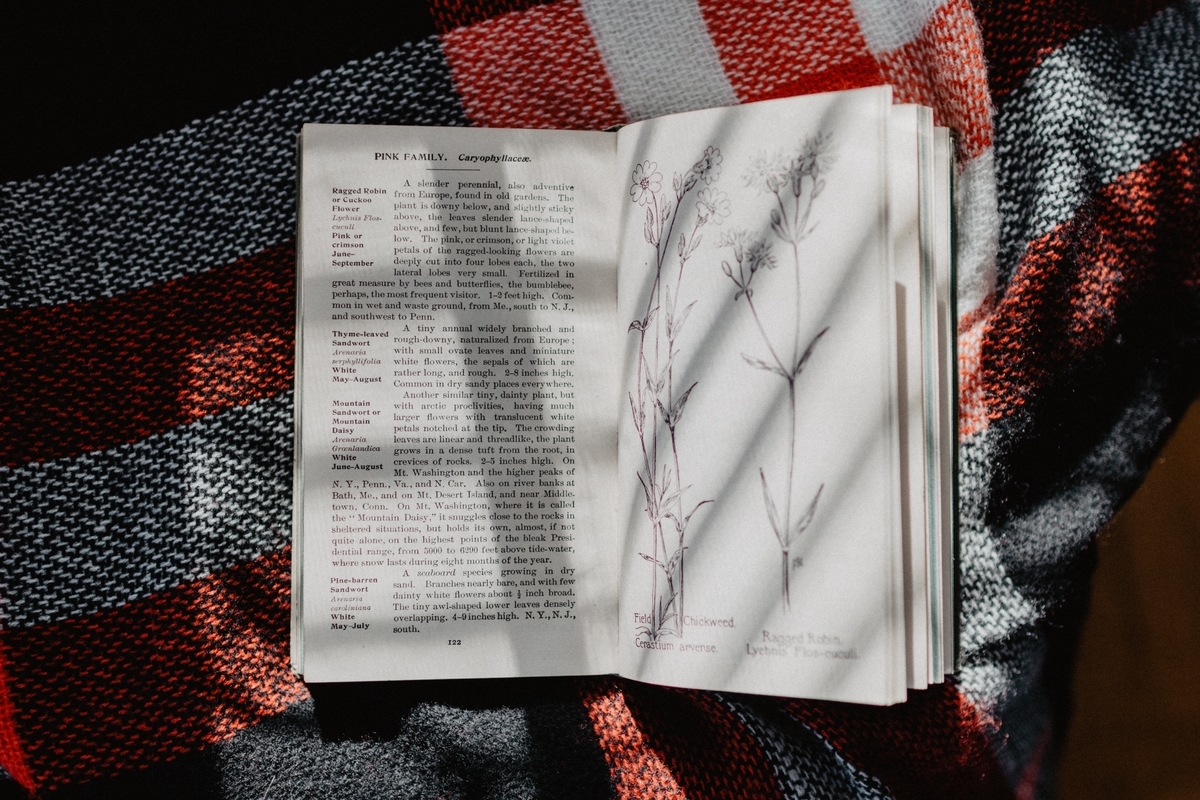 PINK FAMILY. Caryophyllaceæ.
Ragged Robin
or Cuckoo
Flower
Lychnis Flos-
cuculi
Pink or
crimson
June–
September
A slender perennial, also adventive
from Europe, found in old gardens. The
plant is downy below, and slightly sticky
above, the leaves slender lance-shaped
above, and few, but blunt lance-shaped be-
low. The pink, or crimson, or light violet
petals of the ragged-looking flowers are
deeply cut into four lobes each, the two
lateral lobes very small. Fertilized in
great measure by bees and butterflies, the bumblebee,
perhaps, the most frequent visitor. 1–2 feet high. Com-
mon in wet and waste ground, from Me., south to N. J.,
and southwest to Penn.
Thyme-leaved
Sandwort
Arenaria
serpyllifolia
White
May–August
A tiny annual widely branched and
rough-downy, naturalized from Europe;
with small ovate leaves and miniature
white flowers, the sepals of which are
rather long, and rough. 2–8 inches high.
Common in dry sandy places everywhere.
Mountain
Sandwort or
Mountain
Daisy
Arenaria
Grœnlandica
White
June–August
Another similar tiny, dainty plant, but
with arctic proclivities, having much
larger flowers with translucent white
petals notched at the tip. The crowding
leaves are linear and threadlike, the plant
grows in a dense tuft from the root, in
crevices of rocks. 2–5 inches high. On
Mt. Washington and the higher peaks of
N. Y., Penn., Va., and N. Car. Also on river banks at
Bath, Me., and on Mt. Desert Island, and near Middle-
town, Conn. On Mt. Washington, where it is called
the “Mountain Daisy,” it snuggles close to the rocks in
sheltered situations, but holds its own, almost, if not
quite alone, on the highest points of the bleak Presi-
dential range, from 5000 to 6290 feet above tide-water,
where snow lasts during eight months of the year.
Pine-barren
Sandwort
Arenaria
caroliniana
White
May–July
A seaboard species growing in dry
sand. Branches nearly bare, and with few
dainty white flowers about ½ inch broad.
The tiny awl-shaped lower leaves densely
overlapping. 4–9 inches high. N. Y., N. J.,
south.
122
Field Chickweed.
Cerastium arvense.
Ragged Robin.
Lychnis Flos-cuculi.